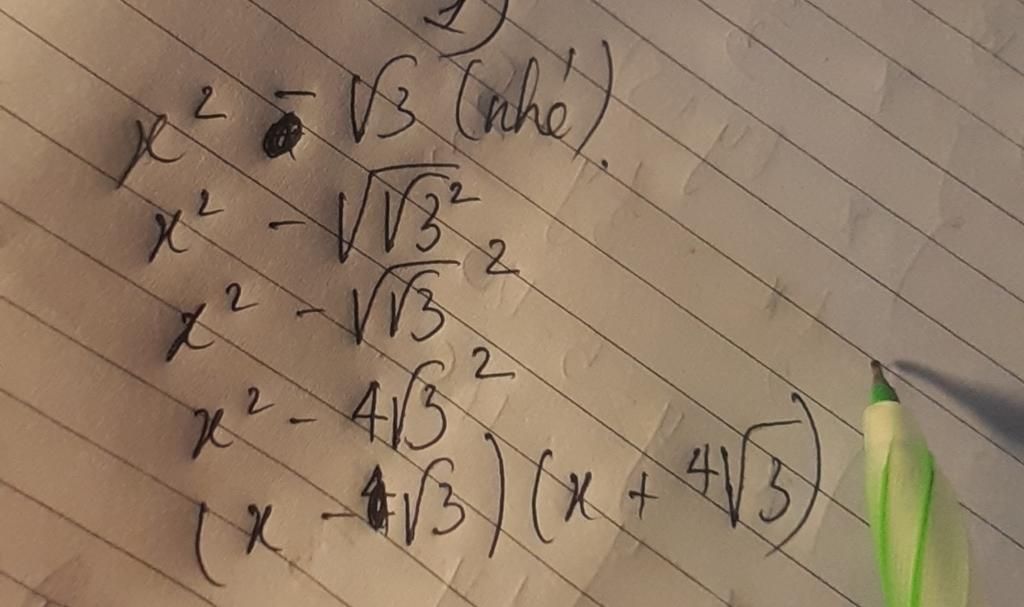 1)
x² - √3 (nhé).
x² - √√3²
x² - √√3²
x² - 4√3²
(x - 4√3)(x + 4√3)